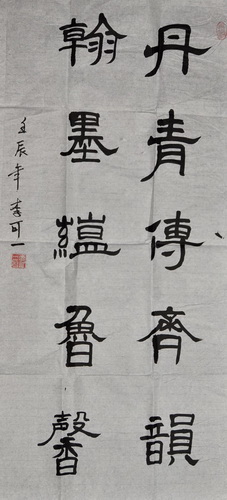 丹青傳齊韻
翰墨緼魯馨
壬辰年 李可一